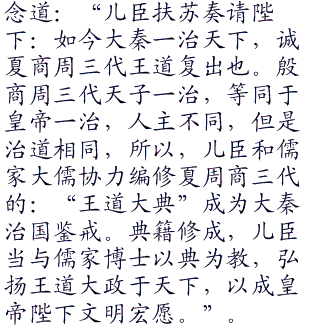 念道：“儿臣扶苏奏请陛
下：如今大秦一治天下，诚
夏商周三代王道复出也。殷
商周三代天子一治，等同于
皇帝一治，人主不同，但是
治道相同，所以，儿臣和儒
家大儒协力编修夏周商三代
的：“王道大典”成为大秦
治国鉴戒。典籍修成，儿臣
当与儒家博士以典为教，弘
扬王道大政于天下，以成皇
帝陛下文明宏愿。”。